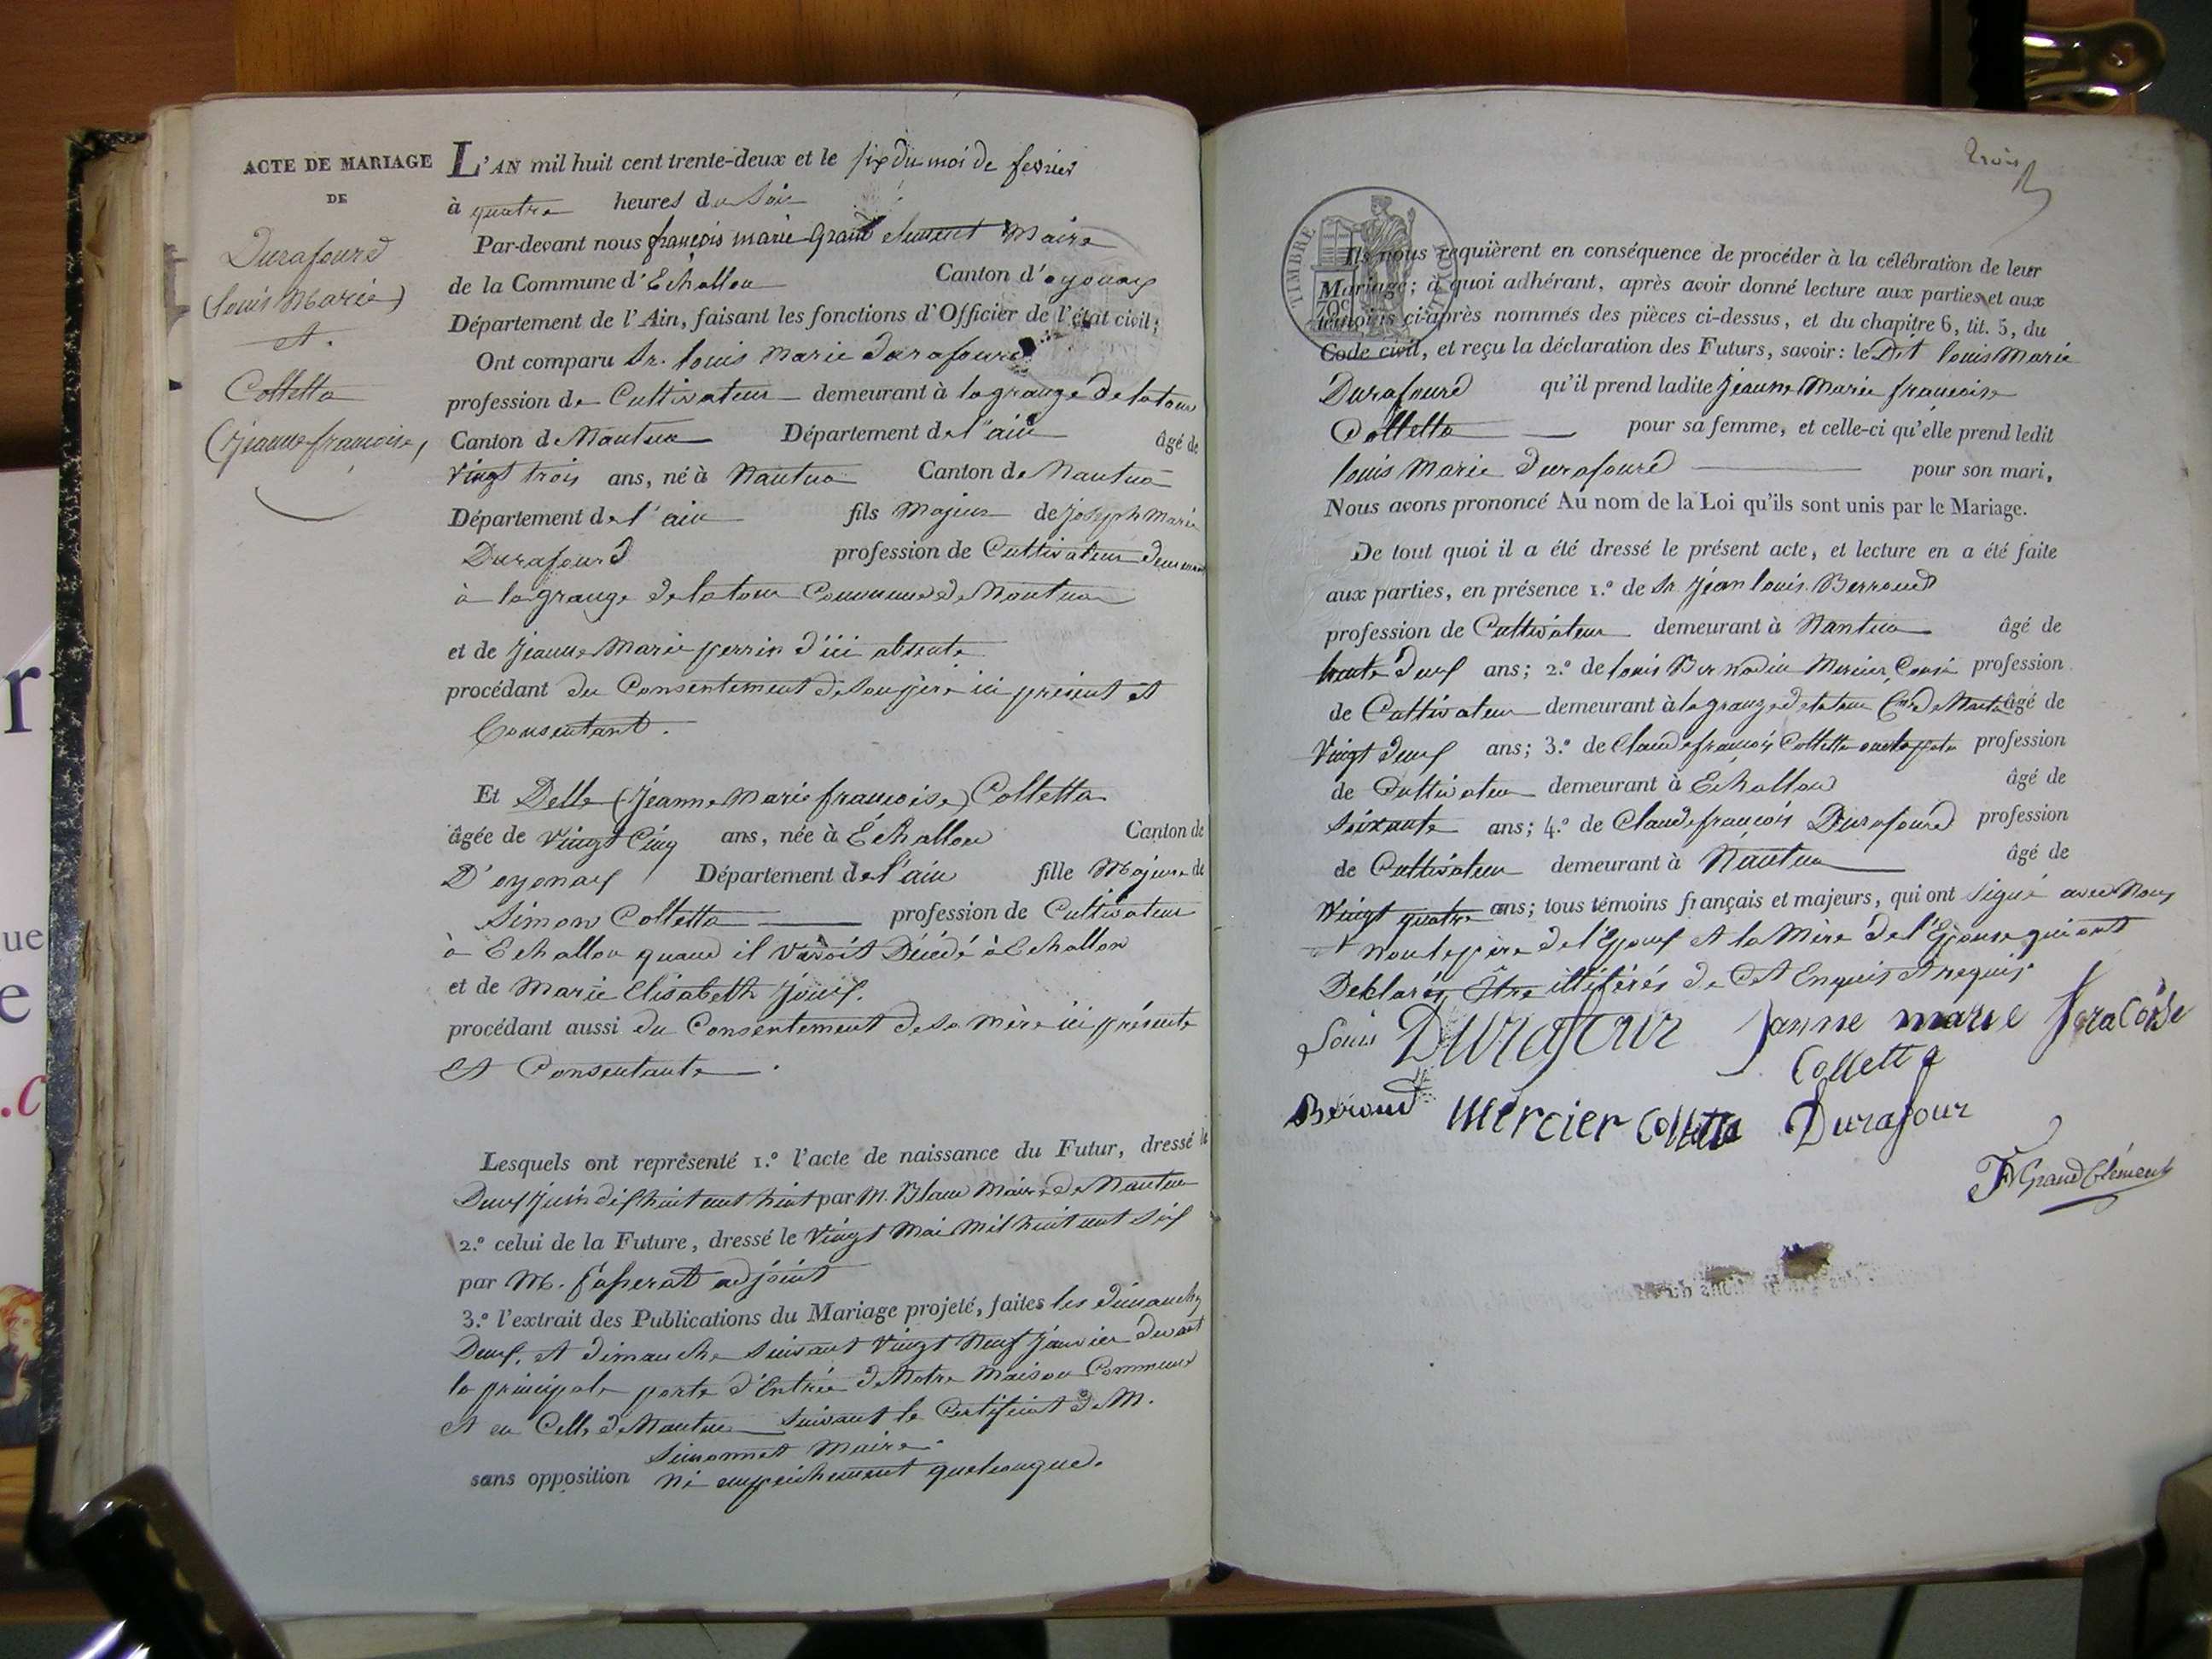 ACTE DE MARIAGE
DE
Durafourd
(louis Marie)
et.
Colletta
(jeanne françoise)
L'AN mil huit cent trente-deux et le six du moi de fevrier
à quatre heures du Soir
Par-devant nous françois marie Grand clement Maire
de la Commune d'Echallon Canton d'oyonax
Département de l'Ain, faisant les fonctions d'Officier de l'état civil;
Ont comparu Sr. louis Marie durafourd
profession de Cultivateur demeurant à la grange de la tour
Canton de Nantua Département de l'ain âgé de
Vingt trois ans, né à Nantua Canton de Nantua
Département de l'ain fils Majeur de joseph Marie
Durafourd profession de Cultivateur demeurant
à la grange de la tour Commune de Nantua
et de Jeanne Marie perrin d'ici absente
procédant du Consentement de son père ici présent et
Consentant.
Et Delle (Jeanne Marie françoise) Colletta
âgée de Vingt Cinq ans, née à Échallon Canton de
D'oyonax Département de l'ain fille Majeure de
Simon Colletta profession de Cultivateur
à Echallon quand il vivoit Décédé à Echallon
et de Marie Elisabeth
procédant aussi du Consentement de sa Mère ici présente
et Consentante.
Lesquels ont représenté 1.º l'acte de naissance du Futur, dressé le
Deux juin dix huit cent huit par M. Blanc Maire de Nantua
2.º celui de la Future, dressé le Vingt Mai Mil huit cent Six
par M. adjoint
3.º l'extrait des Publications du Mariage projeté, faites les dimanches
et dimanche Suivant Vingt Neuf janvier devant
la principale porte d'Entrée de Notre Maison Commune
et en Celle de Nantua Suivant le Certificat de M.
Simonnet Maire
sans opposition ni empeichement quelconque.
trois
TIMBRE ROYAL
70c
Ils nous requièrent en conséquence de procéder à la célébration de leur
Mariage; à quoi adhérant, après avoir donné lecture aux parties et aux
témoins ci-après nommés des pièces ci-dessus, et du chapitre 6, tit. 5, du
Code civil, et reçu la déclaration des Futurs, savoir: le Dit louis Marie
Durafourd qu'il prend ladite Jeanne Marie françoise
Colletta pour sa femme, et celle-ci qu'elle prend ledit
louis Marie Durafourd pour son mari,
Nous avons prononcé Au nom de la Loi qu'ils sont unis par le Mariage.
De tout quoi il a été dressé le présent acte, et lecture en a été faite
aux parties, en présence 1.º de Sr. Jean louis Berroud
profession de Cultivateur demeurant à Nantua âgé de
trente deux ans; 2.º de louis Bernadin Mercier, Cousin profession
de Cultivateur demeurant à la grange de la tour Cne de Nantua âgé de
Vingt deux ans; 3.º de Claude françois Colletta profession
de Cultivateur demeurant à Echallon âgé de
Soixante ans; 4.º de Claude françois Durafourd profession
de Cultivateur demeurant à Nantua âgé de
Vingt quatre ans; tous témoins français et majeurs, qui ont Signé avec Nous
et non le père de l'Epoux et la Mère de l'Epouse qui ont
Déclarés Être illitérés de Ce Enquis et requis
Louis Durafour Janne marie
Colletta
Beroud Mercier Colletta Durafour
F M Grand Clément